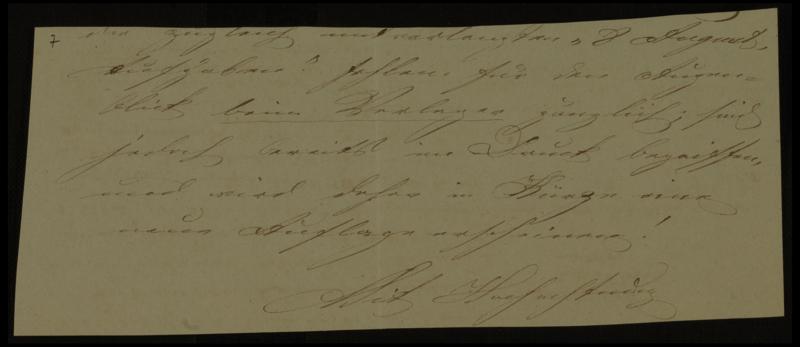 7
die zugleich mitverlangten „8 August.
Aufgaben" fehlen für den Augen=
blick beim Verleger gänzlich; sind
jedoch bereits im Druck begriffen,
und wird daher in Kürze eine
neue Auflage erscheinen!
Mit Hochachtung